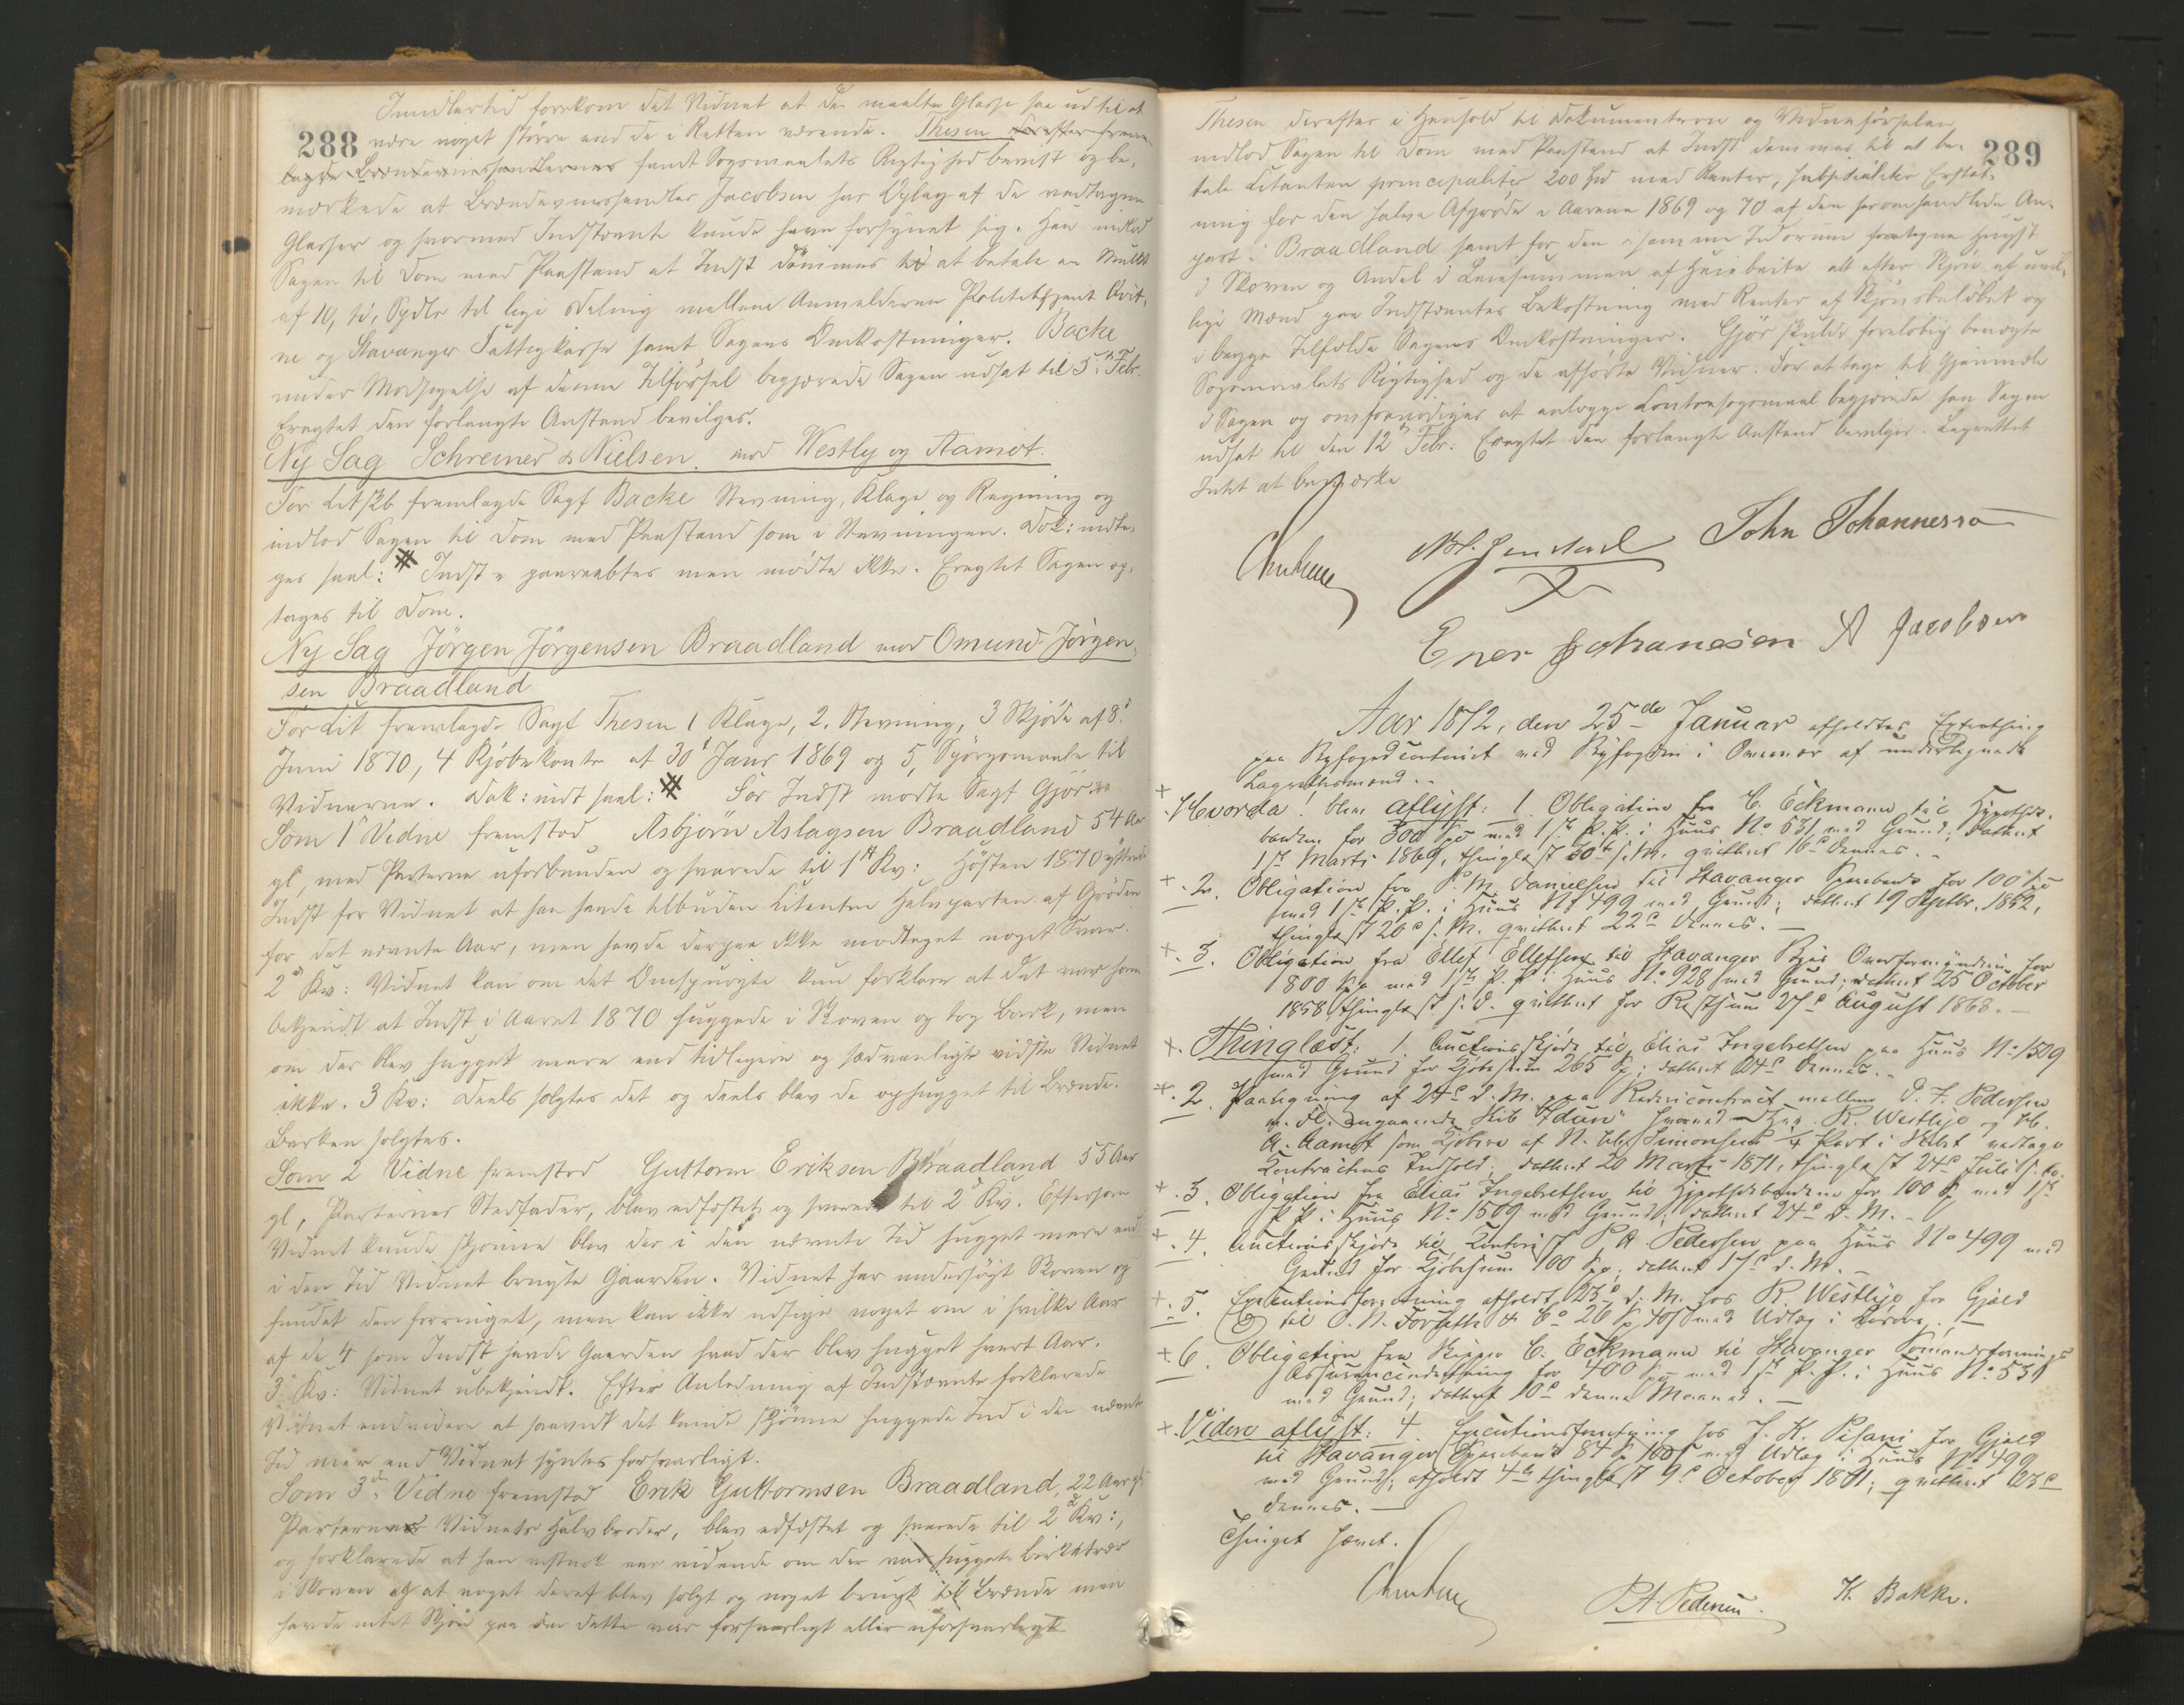 288
Imidlertid forekom det Vidnet at de maalte Glasse saa ud til at
være noget større end de i Retten værende. Thesen derefter frem-
lagde Brændeviinshandlernes samt Sogsmaalets Rigtighed bevist og be-
mærkede at Brændeviinshandler Jacobsen har Oplag af de vedtagne
Glasser og hvormed Indstævnte kunde have forsynet sig. Han indlod
Sagen til Dom med Paastand at Indst dømmes til at betale en Mulkt
af 10, ti, Spdlr til lige Deling mellem Anmelderen Politibetjent Qvit-
ne og Stavanger Fattigkasse samt Sagens Omkostninger. Backe
under Modsigelse af denne Tilførsel begjærede Sagen udsat til 5te Febr.
Eragtet den forlangte Anstand bevilges.
Ny Sag Schreiner & Nielsen mod Westly og Aamot.
For Cit fremlagde Sagf Backe Stevning, Klage og Regning og
indlod Sagen til Dom med Paastand som i Stevningen. Dok: indta-
ges saal: # Indst e paaraabtes men mødte ikke. Eragtet Sagen op-
tages til Dom.
Ny Sag Jörgen Jörgensen Braadland mod Omund Jörgen-
sen Braadland
For Cit fremlagde Sagf Thesen 1 Klage, 2. Stevning, 3 Skjøde af 8d
Juni 1870, 4 Kjöbekontr af 30t Janr 1869 og 5, Spörgsmaale til
Vidnerne. Dok: indt saal: # For Indst mødte Sagf Gjör
Som 1t Vidne fremstod Asbjörn Aslagsen Braadland 54 Aar
gl, med Parterne uforbunden og svarede til 1st Kv: Hösten 1870 yttrede
Indst for Vidnet at han havde tilbuden Citanten Halvparten af Gröden
for det nævnte Aar, men havde derpaa ikke modtaget noget Svar.
2d Kv: Vidnet kan om det Omspurgte kun forklare at det var ham
bekjendt at Indst i Aaret 1870 huggede i Skoven og tog Bark, men
om der blev hugget mere end tidligere og sædvanligt vidste Vidnet
ikke. 3 Kv: Deels solgtes det og deels blev de ophugget til Brænde.
Barken solgtes.
Som 2 Vidne fremstod Guttorm Eriksen Braadland 55 Aar
gl, Parternes Stedfader, blev edfæstet og svarede til 2d Kv. Eftersom
Vidnet kunde skjønne blev der i den nævnte Tid hugget mere end
i den Tid Vidnet brugte Gaarden. Vidnet har undersøgt Skoven og
fundet den forringet, men kan ikke udsige noget om i hvilke Aar
af de 4 som Indst havde Gaarden hvad der blev hugget hvert Aar.
3 Kv: Vidnet ubekjendt. Efter Anledning af Indstævnte forklarede
Vidnet endvidere at saavidt det kunde skjönne huggede Ind i den nævnte
Tid mer end Vidnet syntes forsvarligt.
Som 3de Vidne fremstod Erik Guttormsen Braadland, 22 Aar gl
Parternes Vidnets Halvbroder, blev edfæstet og svarede til 2d Kv:,
og forklarede at han vistnok var vidende om der var hugget Birketrær
i Skoven og at noget deraf blev solgt og noget brugt til Brænde men
havde intet Skjön paa om dette var forsvarligt eller uforsvarligt
289
Thesen derefter i Henhold til Dokumenterne og Vidneførselen
indlod Sagen til Dom med Paastand at Indst dømmes til at be-
tale Citanten principaliter 200 Spd med Renter, subsidialiter Erstat-
ning for den halve Afgrøde i Aarene 1869 og 70 af den heromhandlede An-
part i Braadland samt for den i samme Tidsrum foretagne Hugst
i Skoven og Andel i Leiesummen af Heiebeite alt efter Skjön af uvil-
lige Mænd paa Indstævntes Bekostning med Renter af Skjönsbelöbet og
i begge Tilfælde Sagens Omkostninger. Gjör skulde foreløbig benægte
Sogsmaalets Rigtighed og de afhørte Vidner. For at tage til Gjenmæle
i Sagen og omfornödiges at anlægge Kontrasogsmaal begjærede han Sagen
udsat til den 12te Febr. Eragtet den forlangte Anstand bevilges. Lagrettet
Intet at bemærke
John Johannessen
Ener Johanesen A Jacobsen
Aar 1872, den 25de Januar afholdtes Extrathing
paa Byfogedcontoiret ved Byfogden i Overvær af undertegnede
Lagrettesmænd.
Hvorda blev aflyst: 1. Obligation fra C. Eckmann til Hypotheks-
banken for 300 Spd med 1ste P. P. i Huus No 531 med Grund; dateret
1ste Marts 1869, thinglæst 30te s. M. qvitteret 16d dennes.
2. Obligation fra P. M. Danielsen til Stavanger Sparebank for 100 Spd
med 1ste P. P. i Huus No 499 med Grund; dateret 19 Septbr. 1862,
thinglæst 26d s. M. qvitteret 22d dennes.
3. Obligation fra Ellef Ellefsen til Stavanger Byes Overformynderi for
1800 Spd med 1ste P. P. i Huus No 928 med Grund; dateret 25 October
1858 thinglæst s. D. qvitteret for Restsum 27d August 1868.
Thinglæst: 1. Auctionsskjøde til Elias Ingebretsen paa Huus No 1509
med Grund for Kjöbesum 265 Sp; dateret 24d dennes.
2. Paategning af 24d d. M. paa Redericontract mellem P. F. Pedersen
m. Fl. angaaende Skib "Idun" hvorved R. Westlye og
A. Aamot som Kjøbere af N. Simonsens 1/4 Part i Skibet vedtage
Contractens Indhold; dateret 20 Marts 1871, thinglæst 24d Juli s. A.
3. Obligation fra Elias Ingebretsen til Hypotheksbanken for 100 Sp med 1ste
P. P. i Huus No 1509 med Grund; dateret 24d d. M.
4. Auctionsskjøde til Contorist P A Pedersen paa Huus No 499 med
Grund for Kjöbesum 100 Spd; dateret 17d d. M.
5. Executionsforretning afholdt 23d d. M. hos R Westlye for Gjæld
til O. N. Forseth & Co 26 Sp 40 s med Udlæg i Løsøre.
6. Obligation fra Skipper C. Eckmann til Stavanger Sømandsforenings
Assuranceindretning for 400 Spd med 1ste P. P. i Huus No 531
med Grund; dateret 10d denne Maaned.
Videre aflyst: 4. Executionsforretning hos J. K. Pisani for Gjæld
til Stavanger Sparebank 84 Sp 100 s med Udlæg i Huus No 499
med Grund; afholdt 4de thinglæst 9d October 1871; qvitteret 23d
dennes.
Thinget hævet.
P.A. Pedersen. K. Bakke.